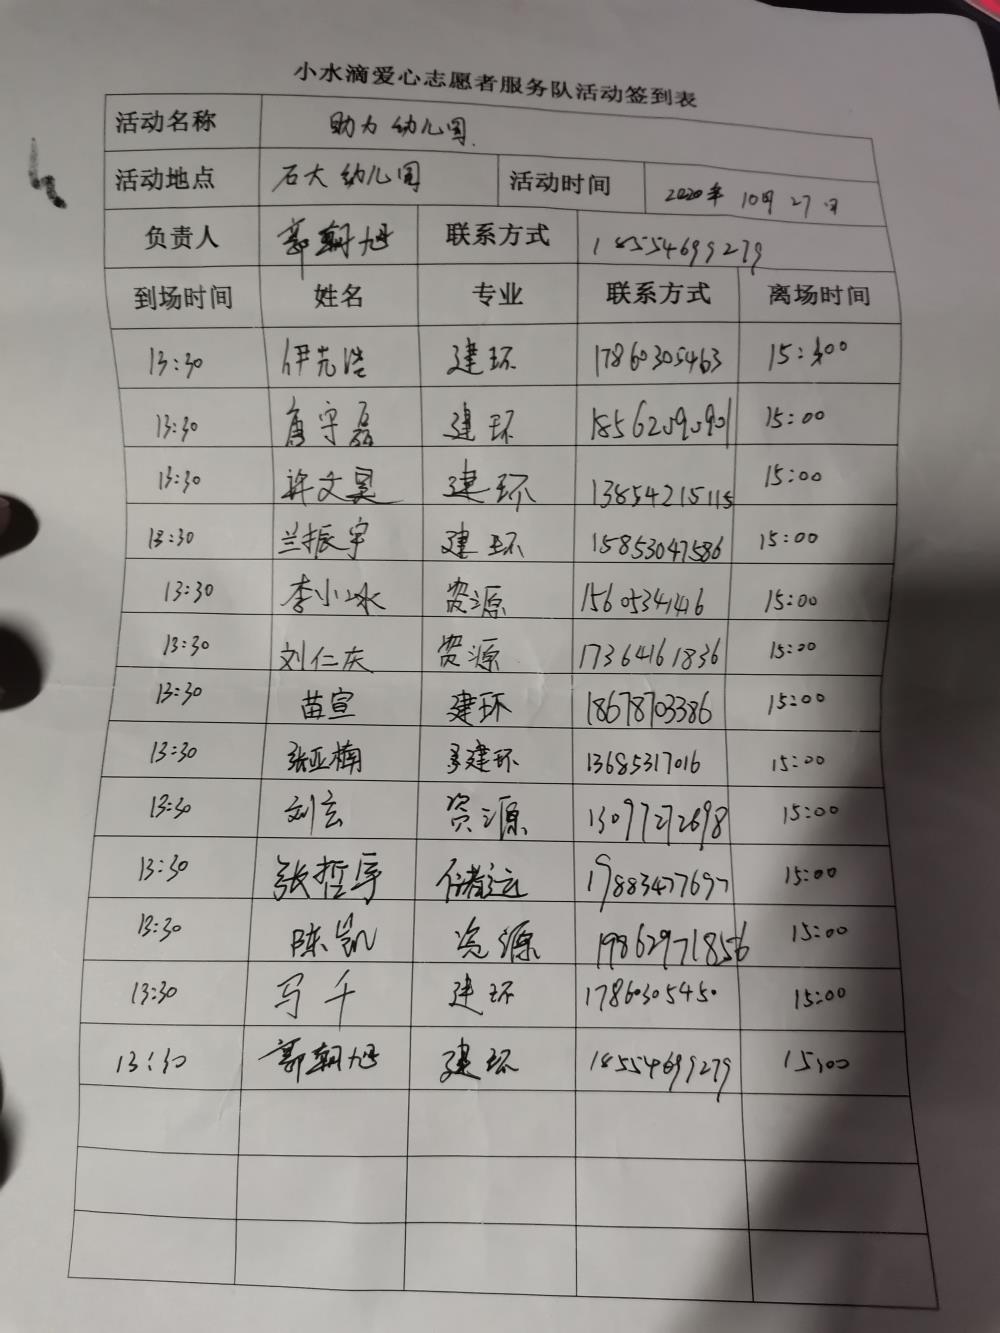 小水滴爱心志愿者服务队活动签到表
活动名称 助力幼儿园.
活动地点 石大幼儿园 活动时间 2020年10月27日
负责人 郭朝旭 联系方式 18554699279
到场时间 姓名 专业 联系方式 离场时间
13:30 伊克浩 建环 17860305463 15:00
13:30 唐守磊 建环 18562090901 15:00
13:30 许文昊 建环 13854215115 15:00
13:30 兰振宇 建环 15853047586 15:00
13:30 李小冰 资源 15605341416 15:00
13:30 刘仁庆 资源 17364161836 15:00
13:30 苗宣 建环 18678703386 15:00
13:30 张亚楠 建环 13685317016 15:00
13:30 刘玄 资源 13097272698 15:00
13:30 张哲宇 储运 19883477697 15:00
13:30 陈凯 资源 19862971856 15:00
13:30 马千 建环 17860305450 15:00
13:30 郭朝旭 建环 18554699279 15:00